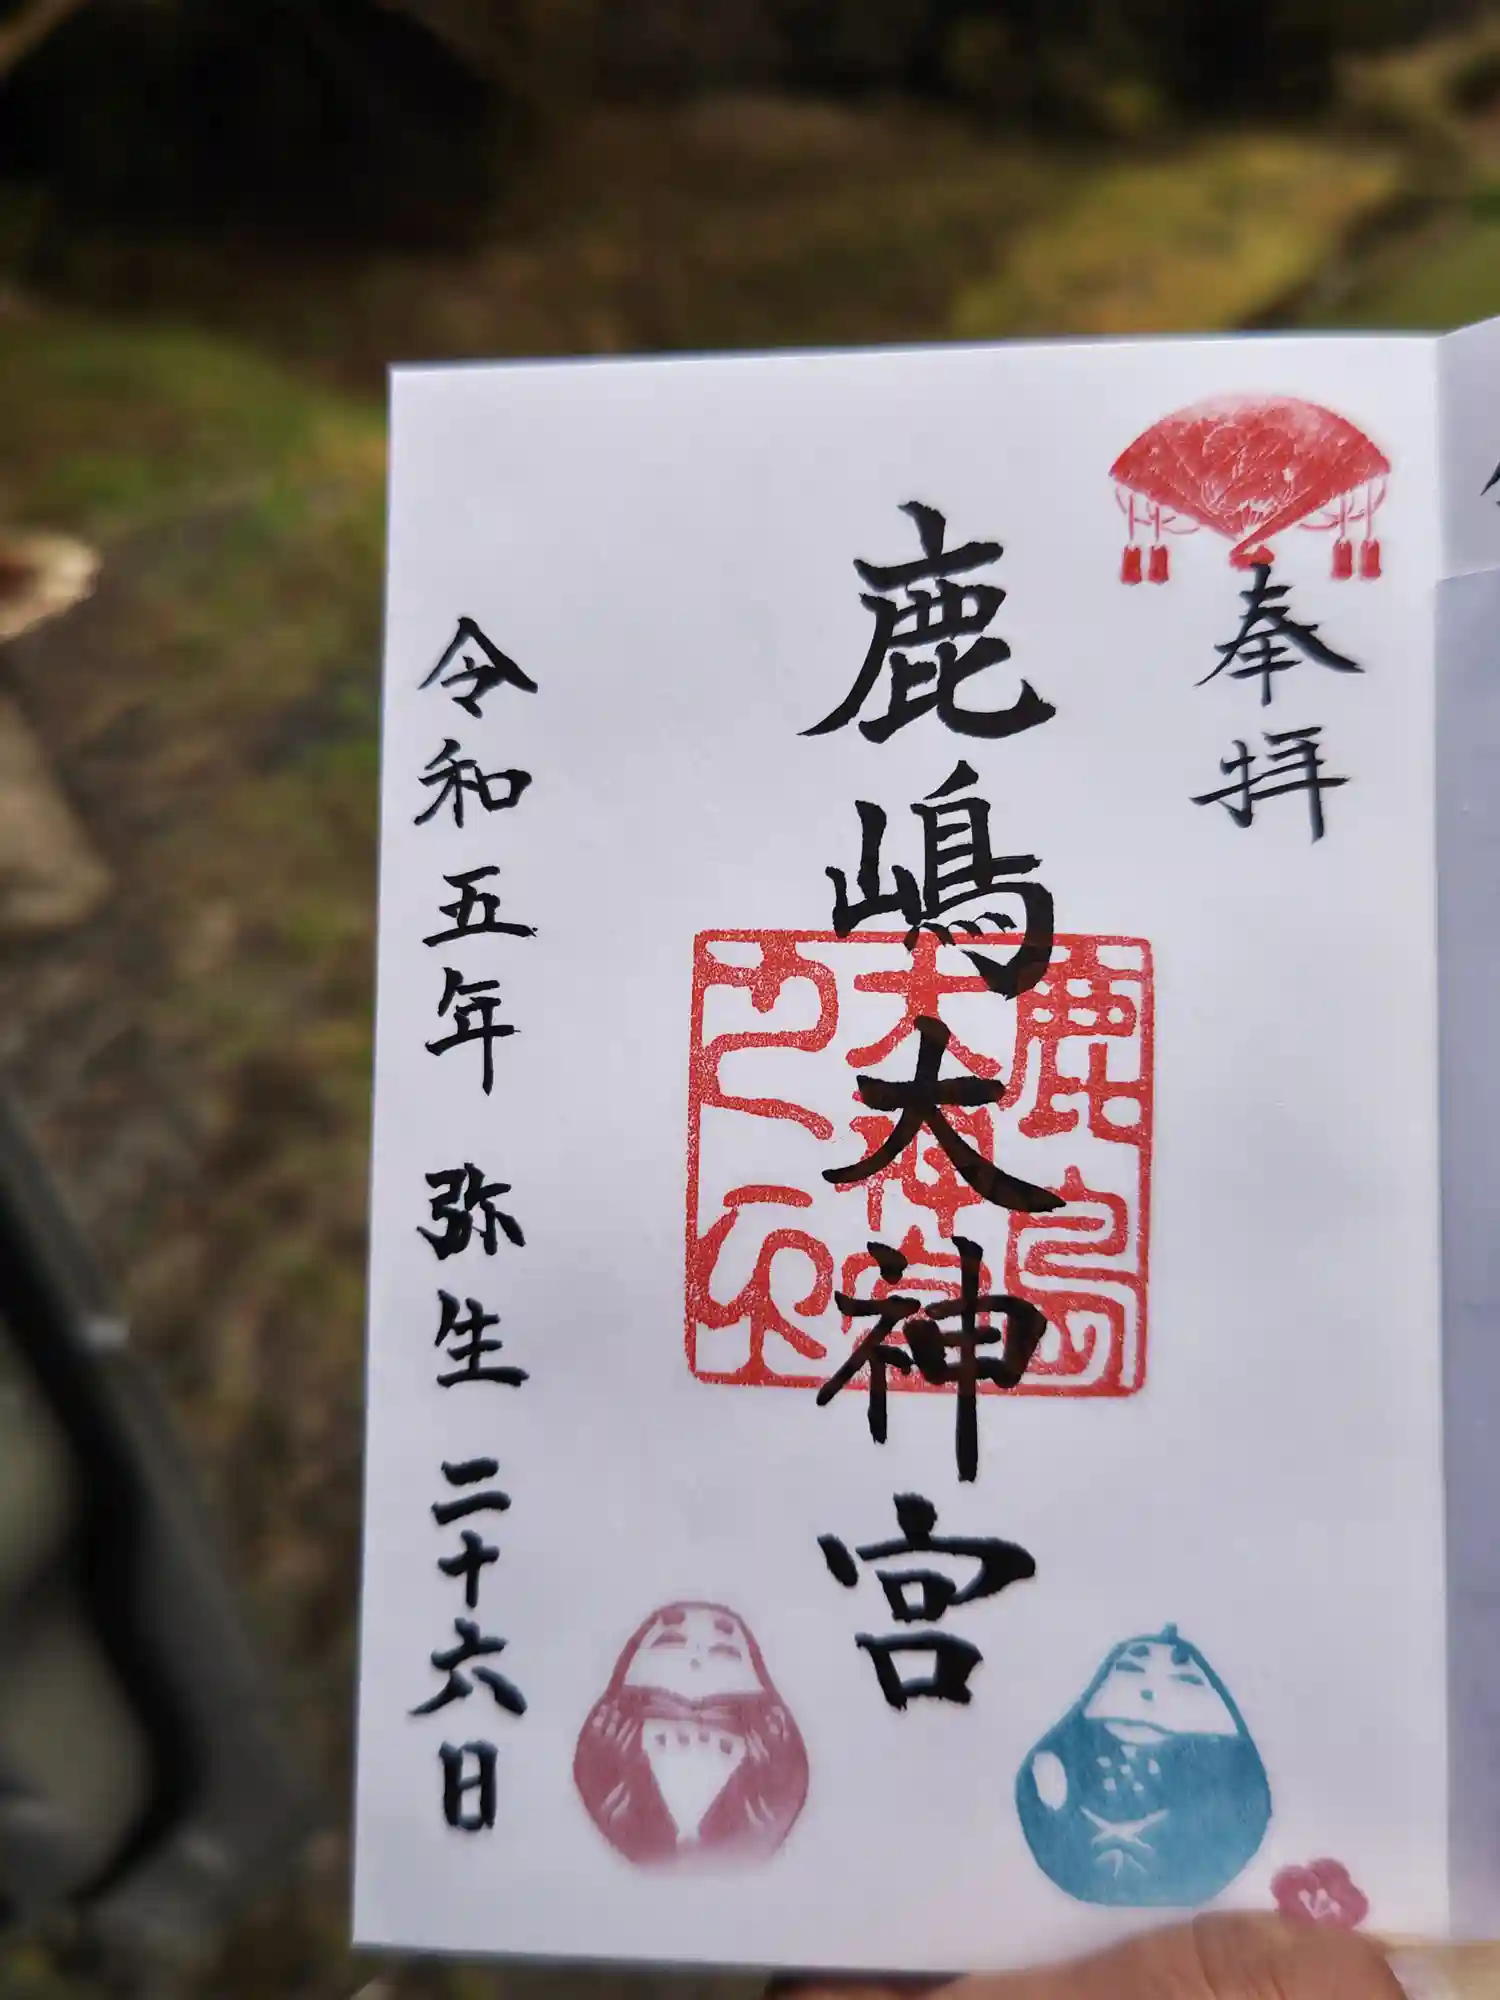 奉拝
鹿嶋大神宮
鹿島
大神宮
之印
令和五年 弥生 二十六日